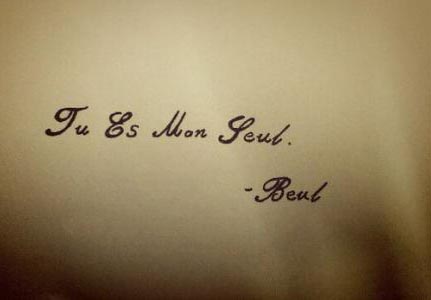 Tu Es Mon Seul.
-Beul